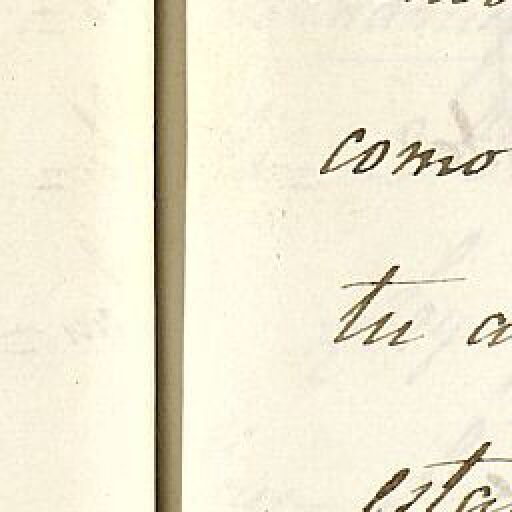 como
tu a
esta